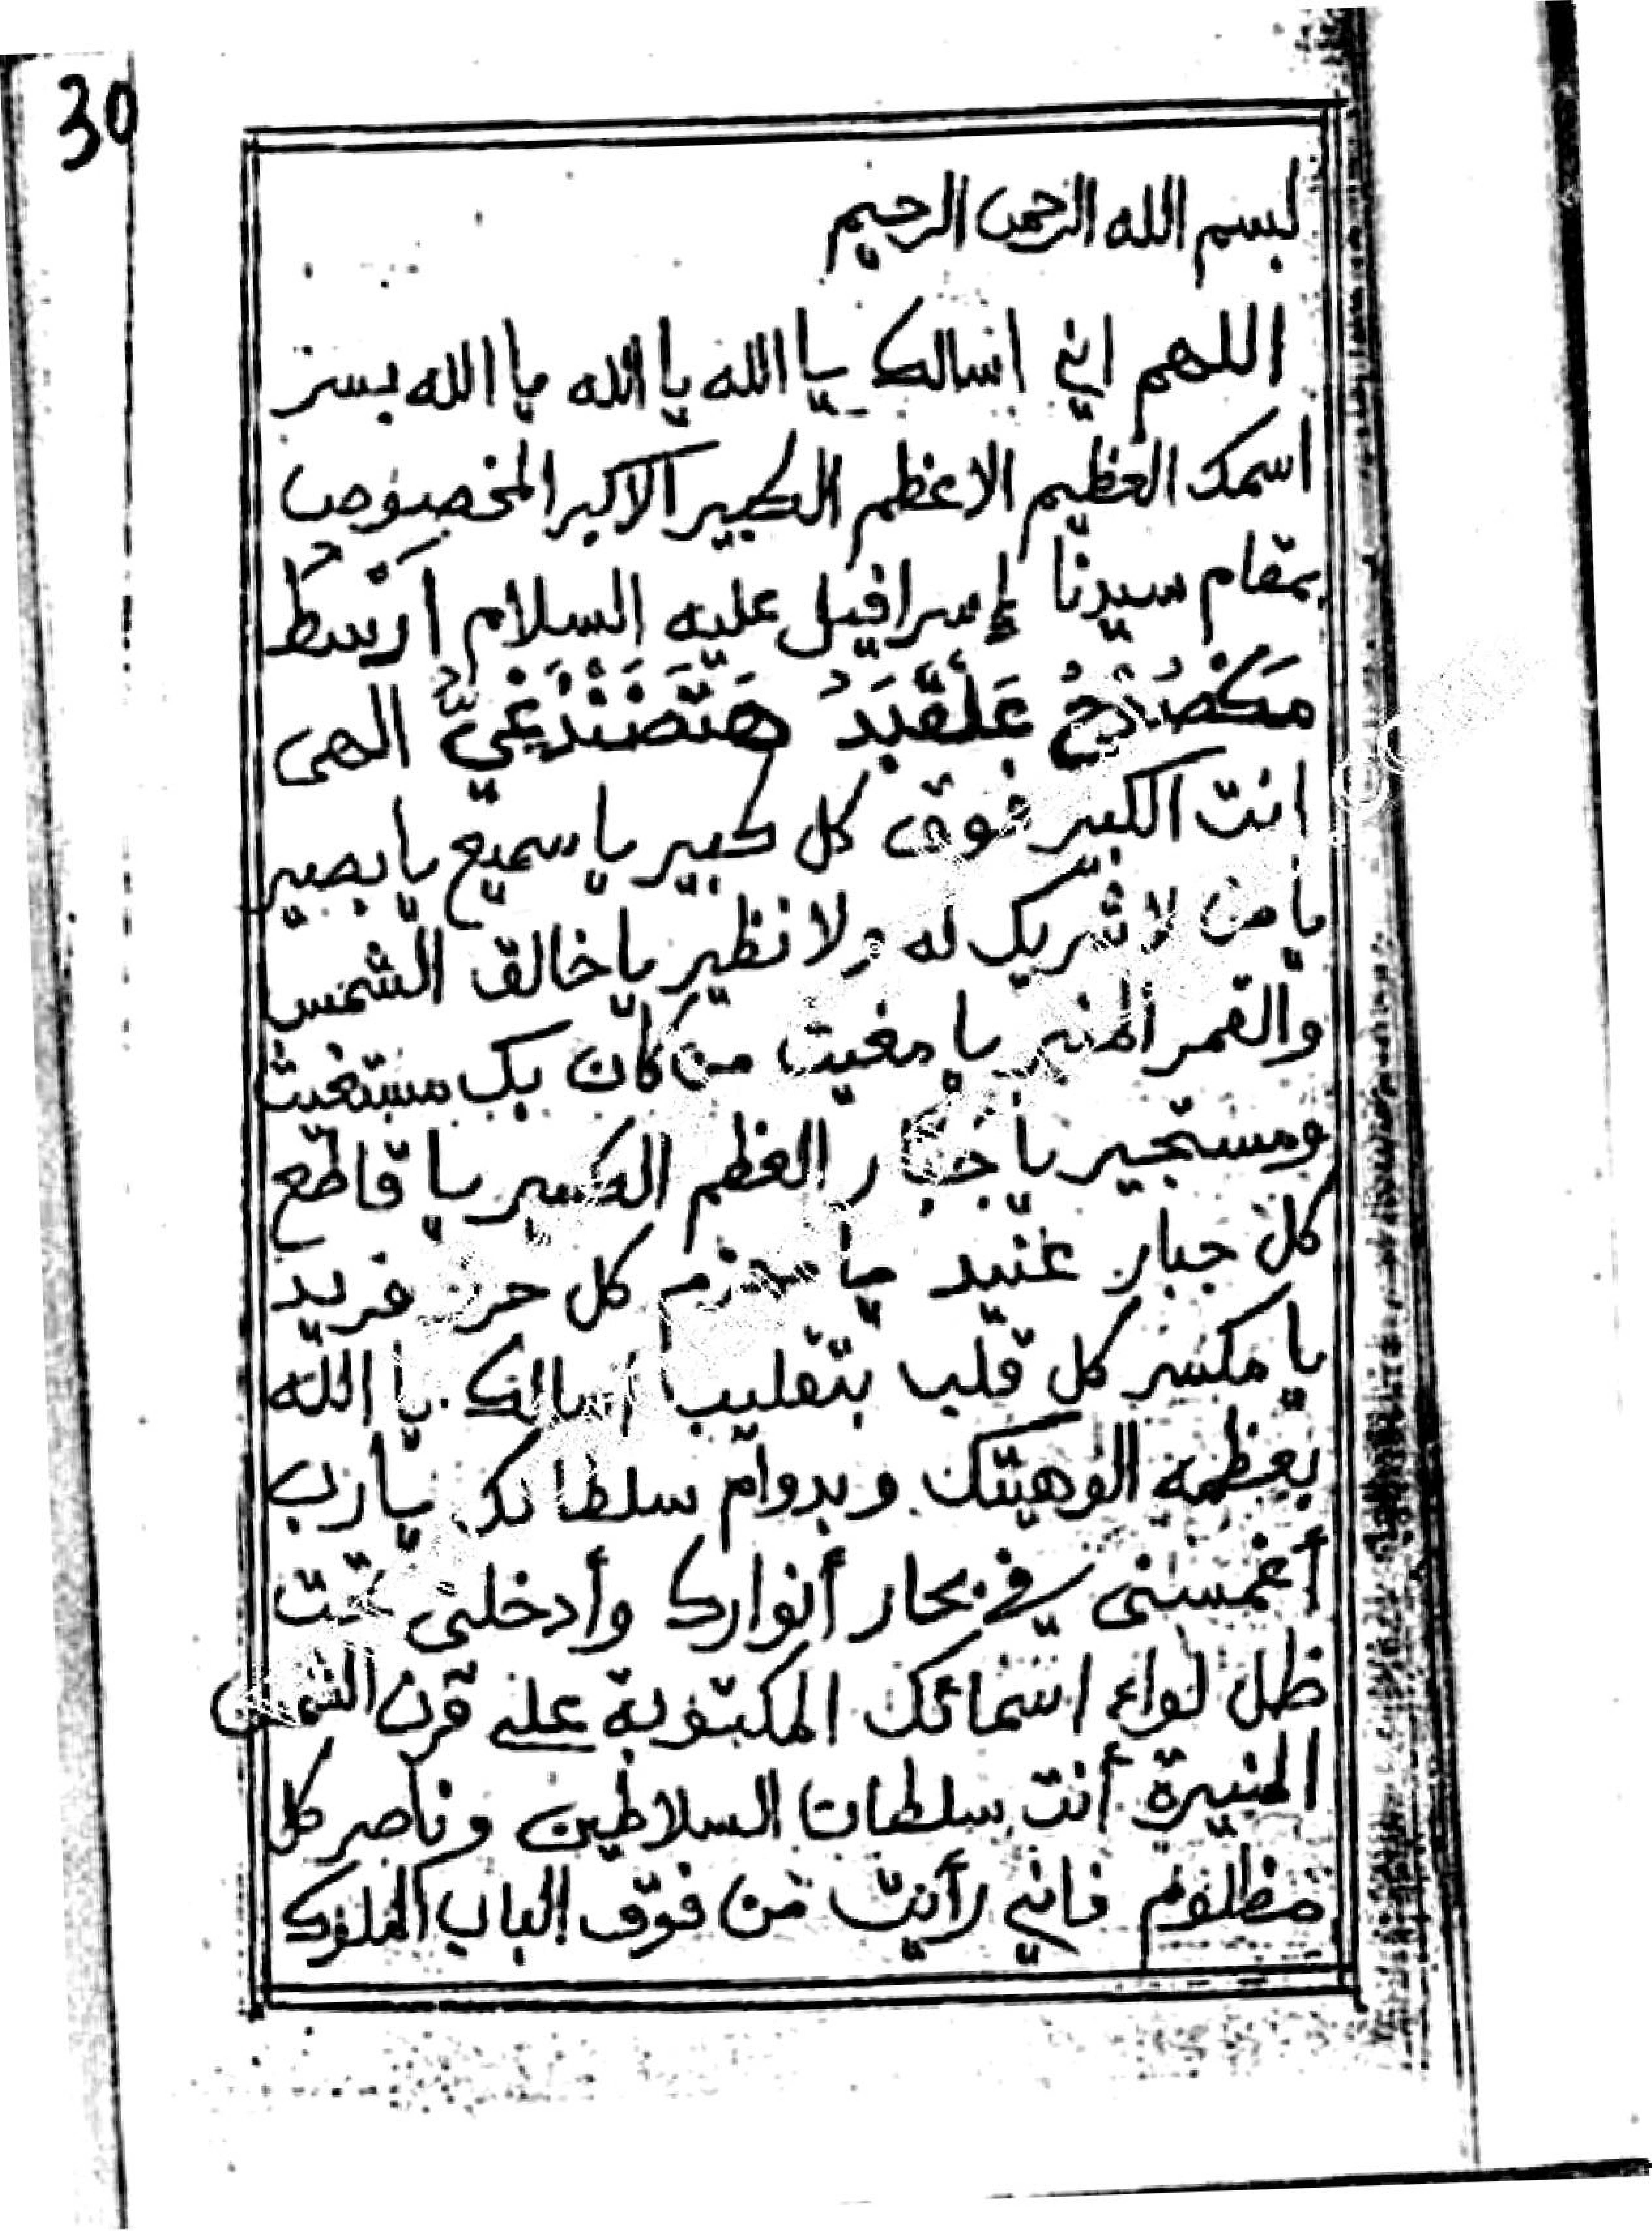 30
بسم الله الرحمن الرحيم
اللهم اني اسالك يا الله يا الله يا الله بسر
اسمك العظيم الاعظم الكبير الاكبر المخصوص
بمقام سيدنا إسرافيل عليه السلام
الهى
انت الكبير فوق كل كبير يا سميع يا بصير
يا من لا شريك له ولا نظير يا خالق الشمس
والقمر المنير يا مغيث من كان بك مستغيث
ومستجير يا جبار العظم الكسير يا قاطع
كل جبار عنيد يا كل فريد
يا مكسر كل قلب بتقليب اسالك يا الله
بعظمة الوهيتك وبدوام سلطانك يا رب
أغمسنى في بحار أنوارك وأدخلنى تحت
ظل لواء اسمائك المكتوبة على قرن الشمس
المنيرة أنت سلطان السلاطين وناصر كل
مظلوم فاني رأيت من فوق الباب الملوك